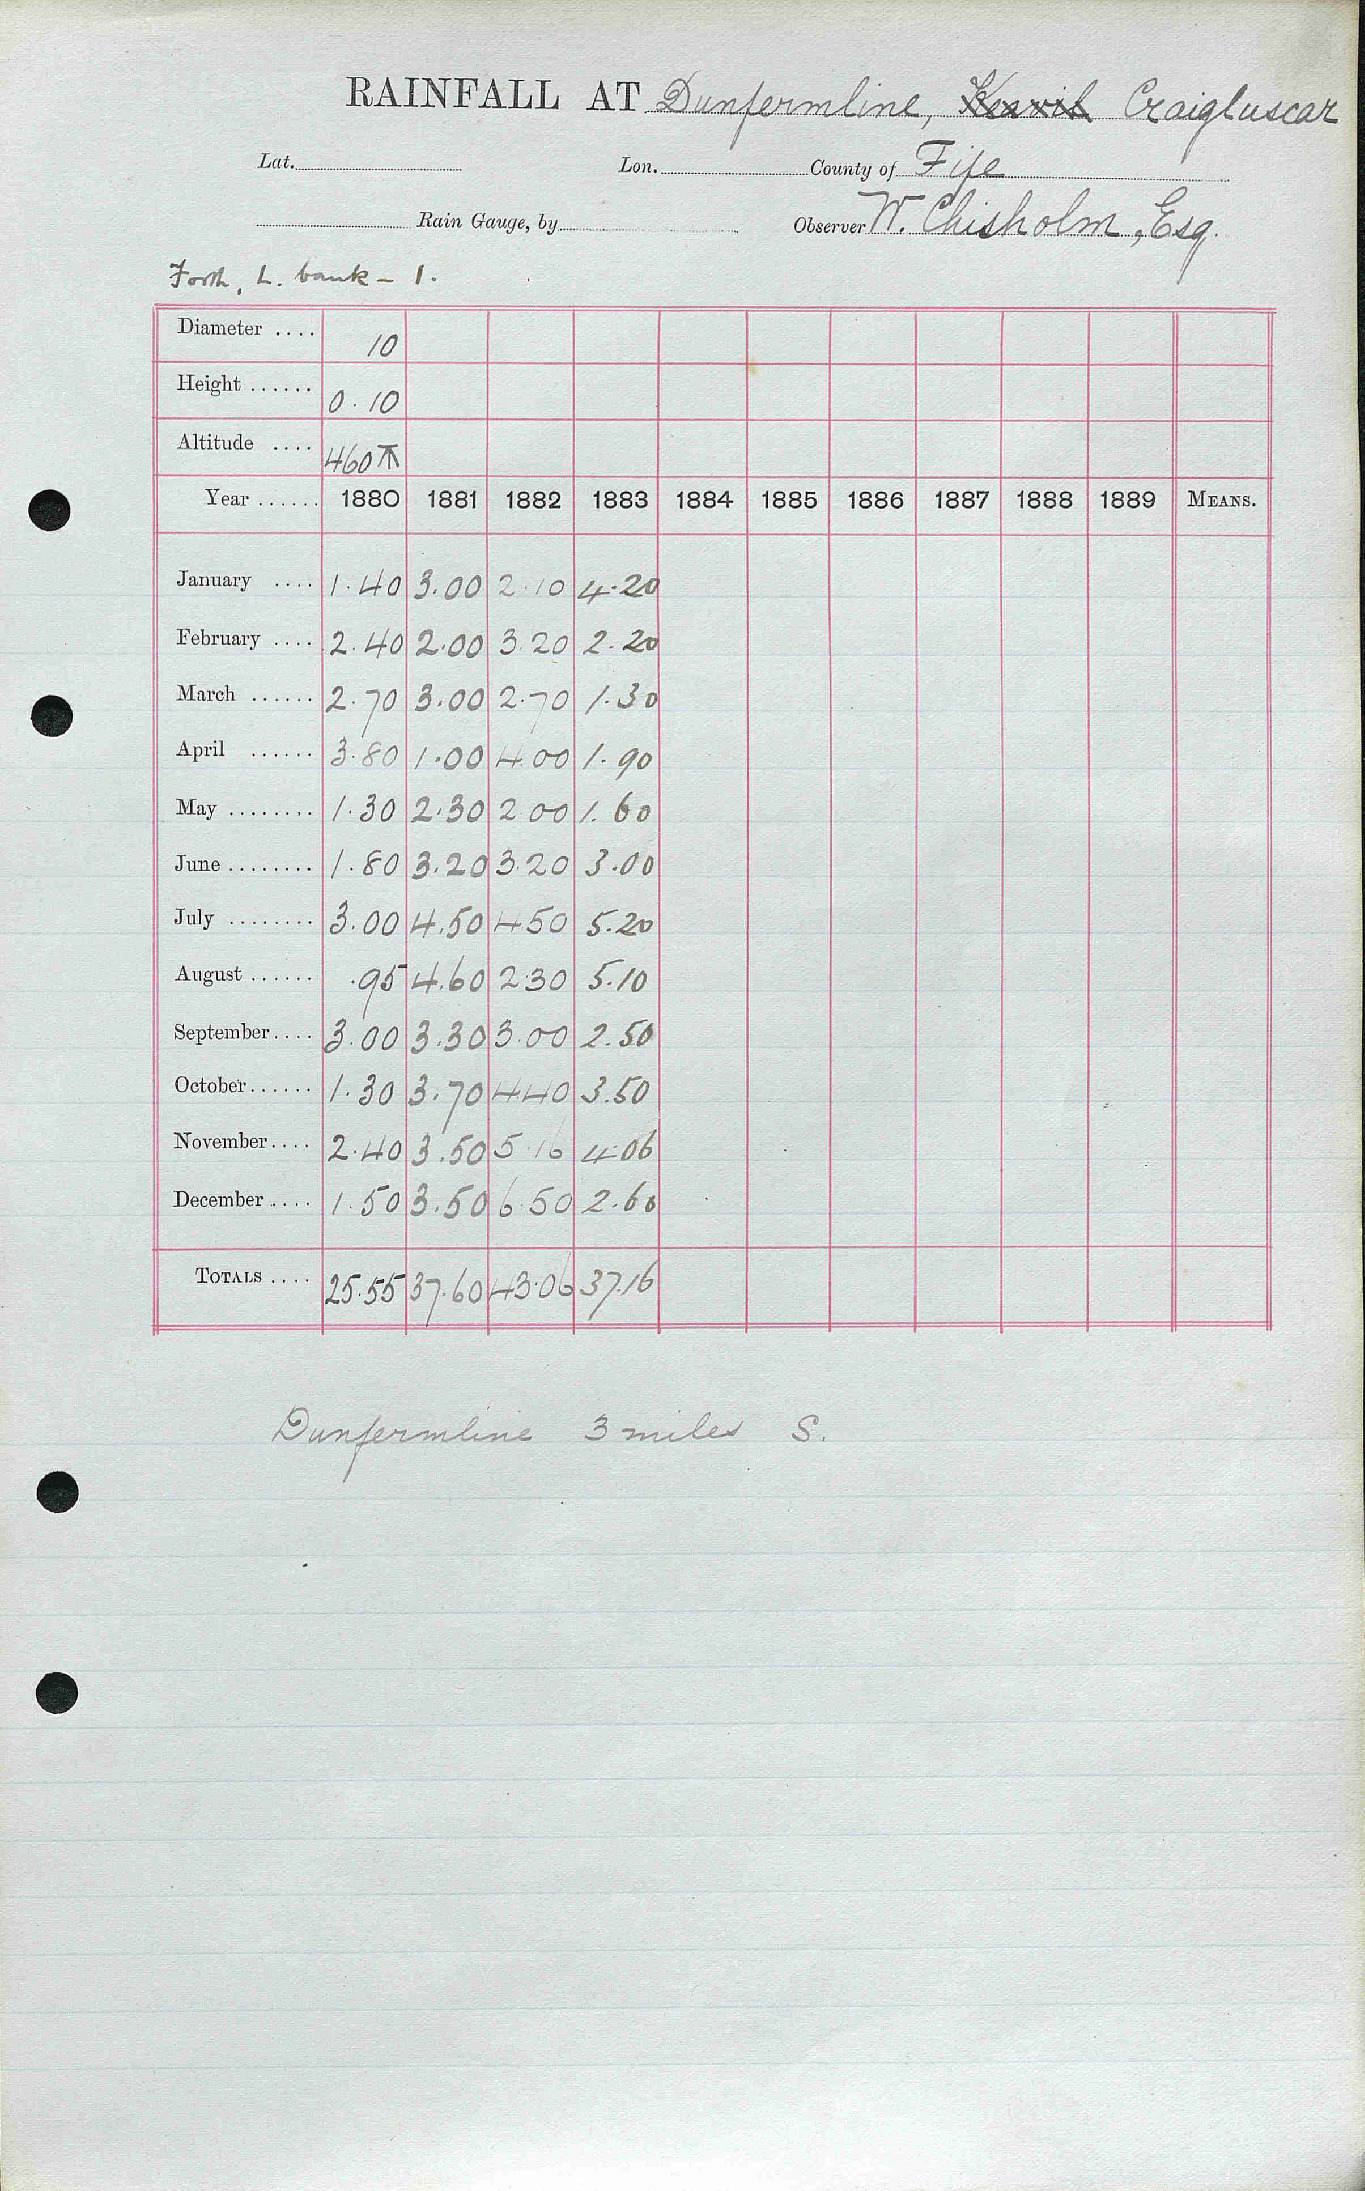 RAINFALL AT Dunfermline, Craigluscar
Lat. Lon. County of Fife
Rain Gauge, by Observer W. Chisholm, Esq.
Forth, L. bank - 1.
Diameter .... 10
Height ...... 0.10
Altitude .... 460
Year ...... 1880 1881 1882 1883 1884 1885 1886 1887 1888 1889 MEANS.
January .... 1.40 3.00 2.10 4.20
February .... 2.40 2.00 3.20 2.20
March ...... 2.70 3.00 2.70 1.30
April ...... 3.80 1.00 4.00 1.90
May ........ 1.30 2.30 2.00 1.60
June ........ 1.80 3.20 3.20 3.00
July ........ 3.00 4.50 4.50 5.20
August ...... .95 4.60 2.30 5.10
September.... 3.00 3.30 3.00 2.50
October...... 1.30 3.70 4.40 3.50
November.... 2.40 3.50 5.16 4.06
December .... 1.50 3.50 6.50 2.60
TOTALS .... 25.55 37.60 43.06 37.16
Dunfermline 3 miles S.